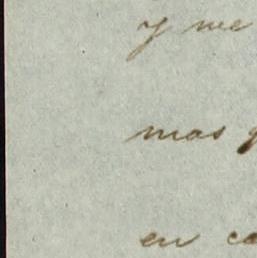 y me
mas
en